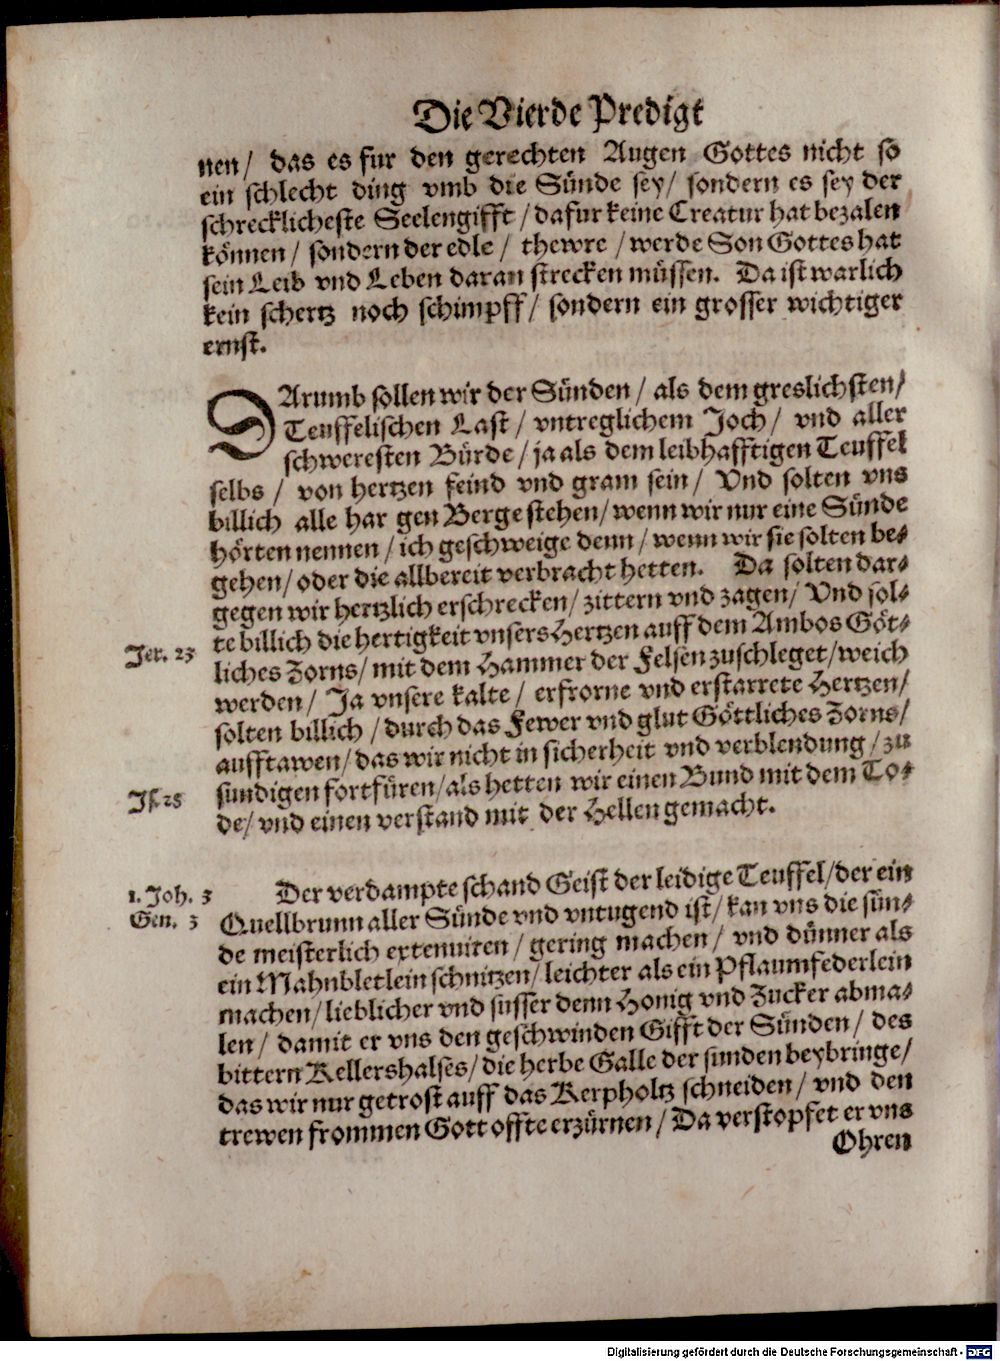 Die Vierde Predigt
nen/ das es fur den gerechten Augen Gottes nicht so
ein schlecht ding vmb die Sünde sey/ sondern es sey der
schrecklicheste Seelengifft/dafur keine Creatur hat bezalen
können/ sondern der edle/ thewre/werde Son Gottes hat
sein Leib vnd Leben daran strecken müssen. Da ist warlich
kein schertz noch schimpff/ sondern ein grosser wichtiger
ernst.
DArumb sollen wir der Sünden/ als dem greslichsten/
Teuffelischen Last/ vntreglichem Joch/ vnd aller
schweresten Bürde/ja als dem leibhafftigen Teuffel
selbs/ von hertzen feind vnd gram sein/ Vnd solten vns
billich alle har gen Berge stehen/wenn wir nur eine Sünde
hörten nennen/ich geschweige denn/wenn wir sie solten be-
gehen/oder die allbereit verbracht hetten. Da solten dar-
gegen wir hertzlich erschrecken/zittern vnd zagen/ Vnd sol-
Jer. 23
te billich die hertigkeit vnsers Hertzen auff dem Ambos Göt-
liches Zorns/mit dem Hammer der Felsen zuschleget/weich
werden/ Ja vnsere kalte/ erfrorne vnd erstarrete Hertzen/
solten billich/durch das Fewer vnd glut Göttliches Zorns/
aufftawen/das wir nicht in sicherheit vnd verblendung/zu
Js. 28
sundigen fortfüren/als hetten wir einen Bund mit dem To-
de/vnd einen verstand mit der Hellen gemacht.
1. Joh. 3
Gen. 3
Der verdampte schand Geist der leidige Teuffel/der ein
Quellbrunn aller Sünde vnd vntugend ist/kan vns die sün-
de meisterlich extenuiren/ gering machen/ vnd dünner als
ein Mahnbletlein schnitzen/leichter als ein Pflaumfederlein
machen/lieblicher vnd susser denn Honig vnd Zucker abma-
len/ damit er vns den geschwinden Gifft der Sünden/ des
bittern Kellershalses/die herbe Galle der sunden beybringe/
das wir nur getrost auff das Kerpholtz schneiden/ vnd den
trewen frommen Gott offte erzürnen/Da verstopfet er vns
Ohren
Digitalisierung gefördert durch die Deutsche Forschungsgemeinschaft - DFG